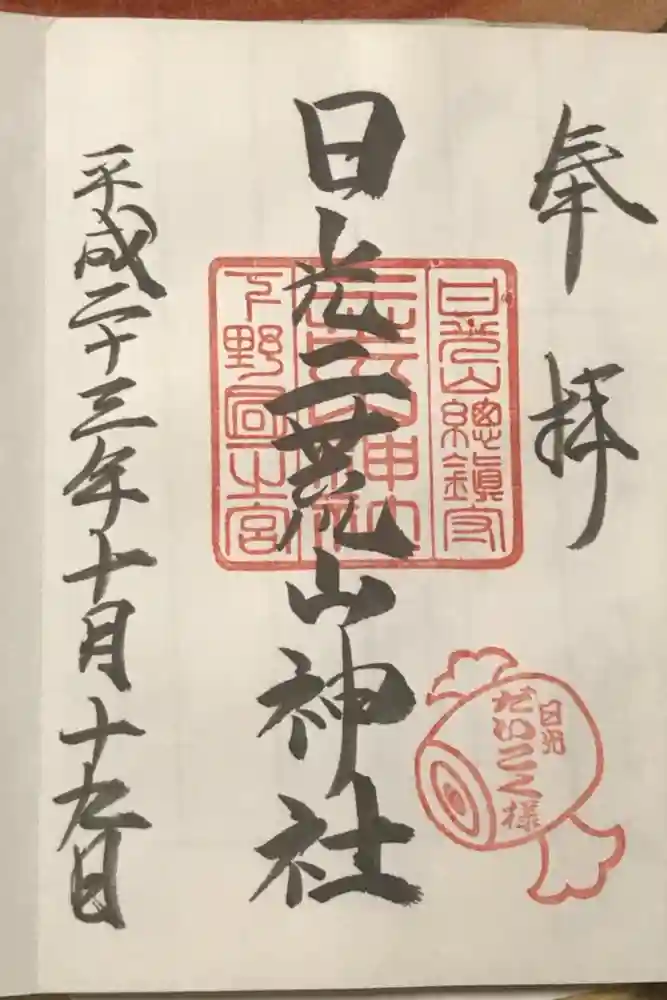 奉拝
日光山總鎮守
日光二荒山神社
下野國一宮
平成二十三年十月十九日
日光
だいこく様